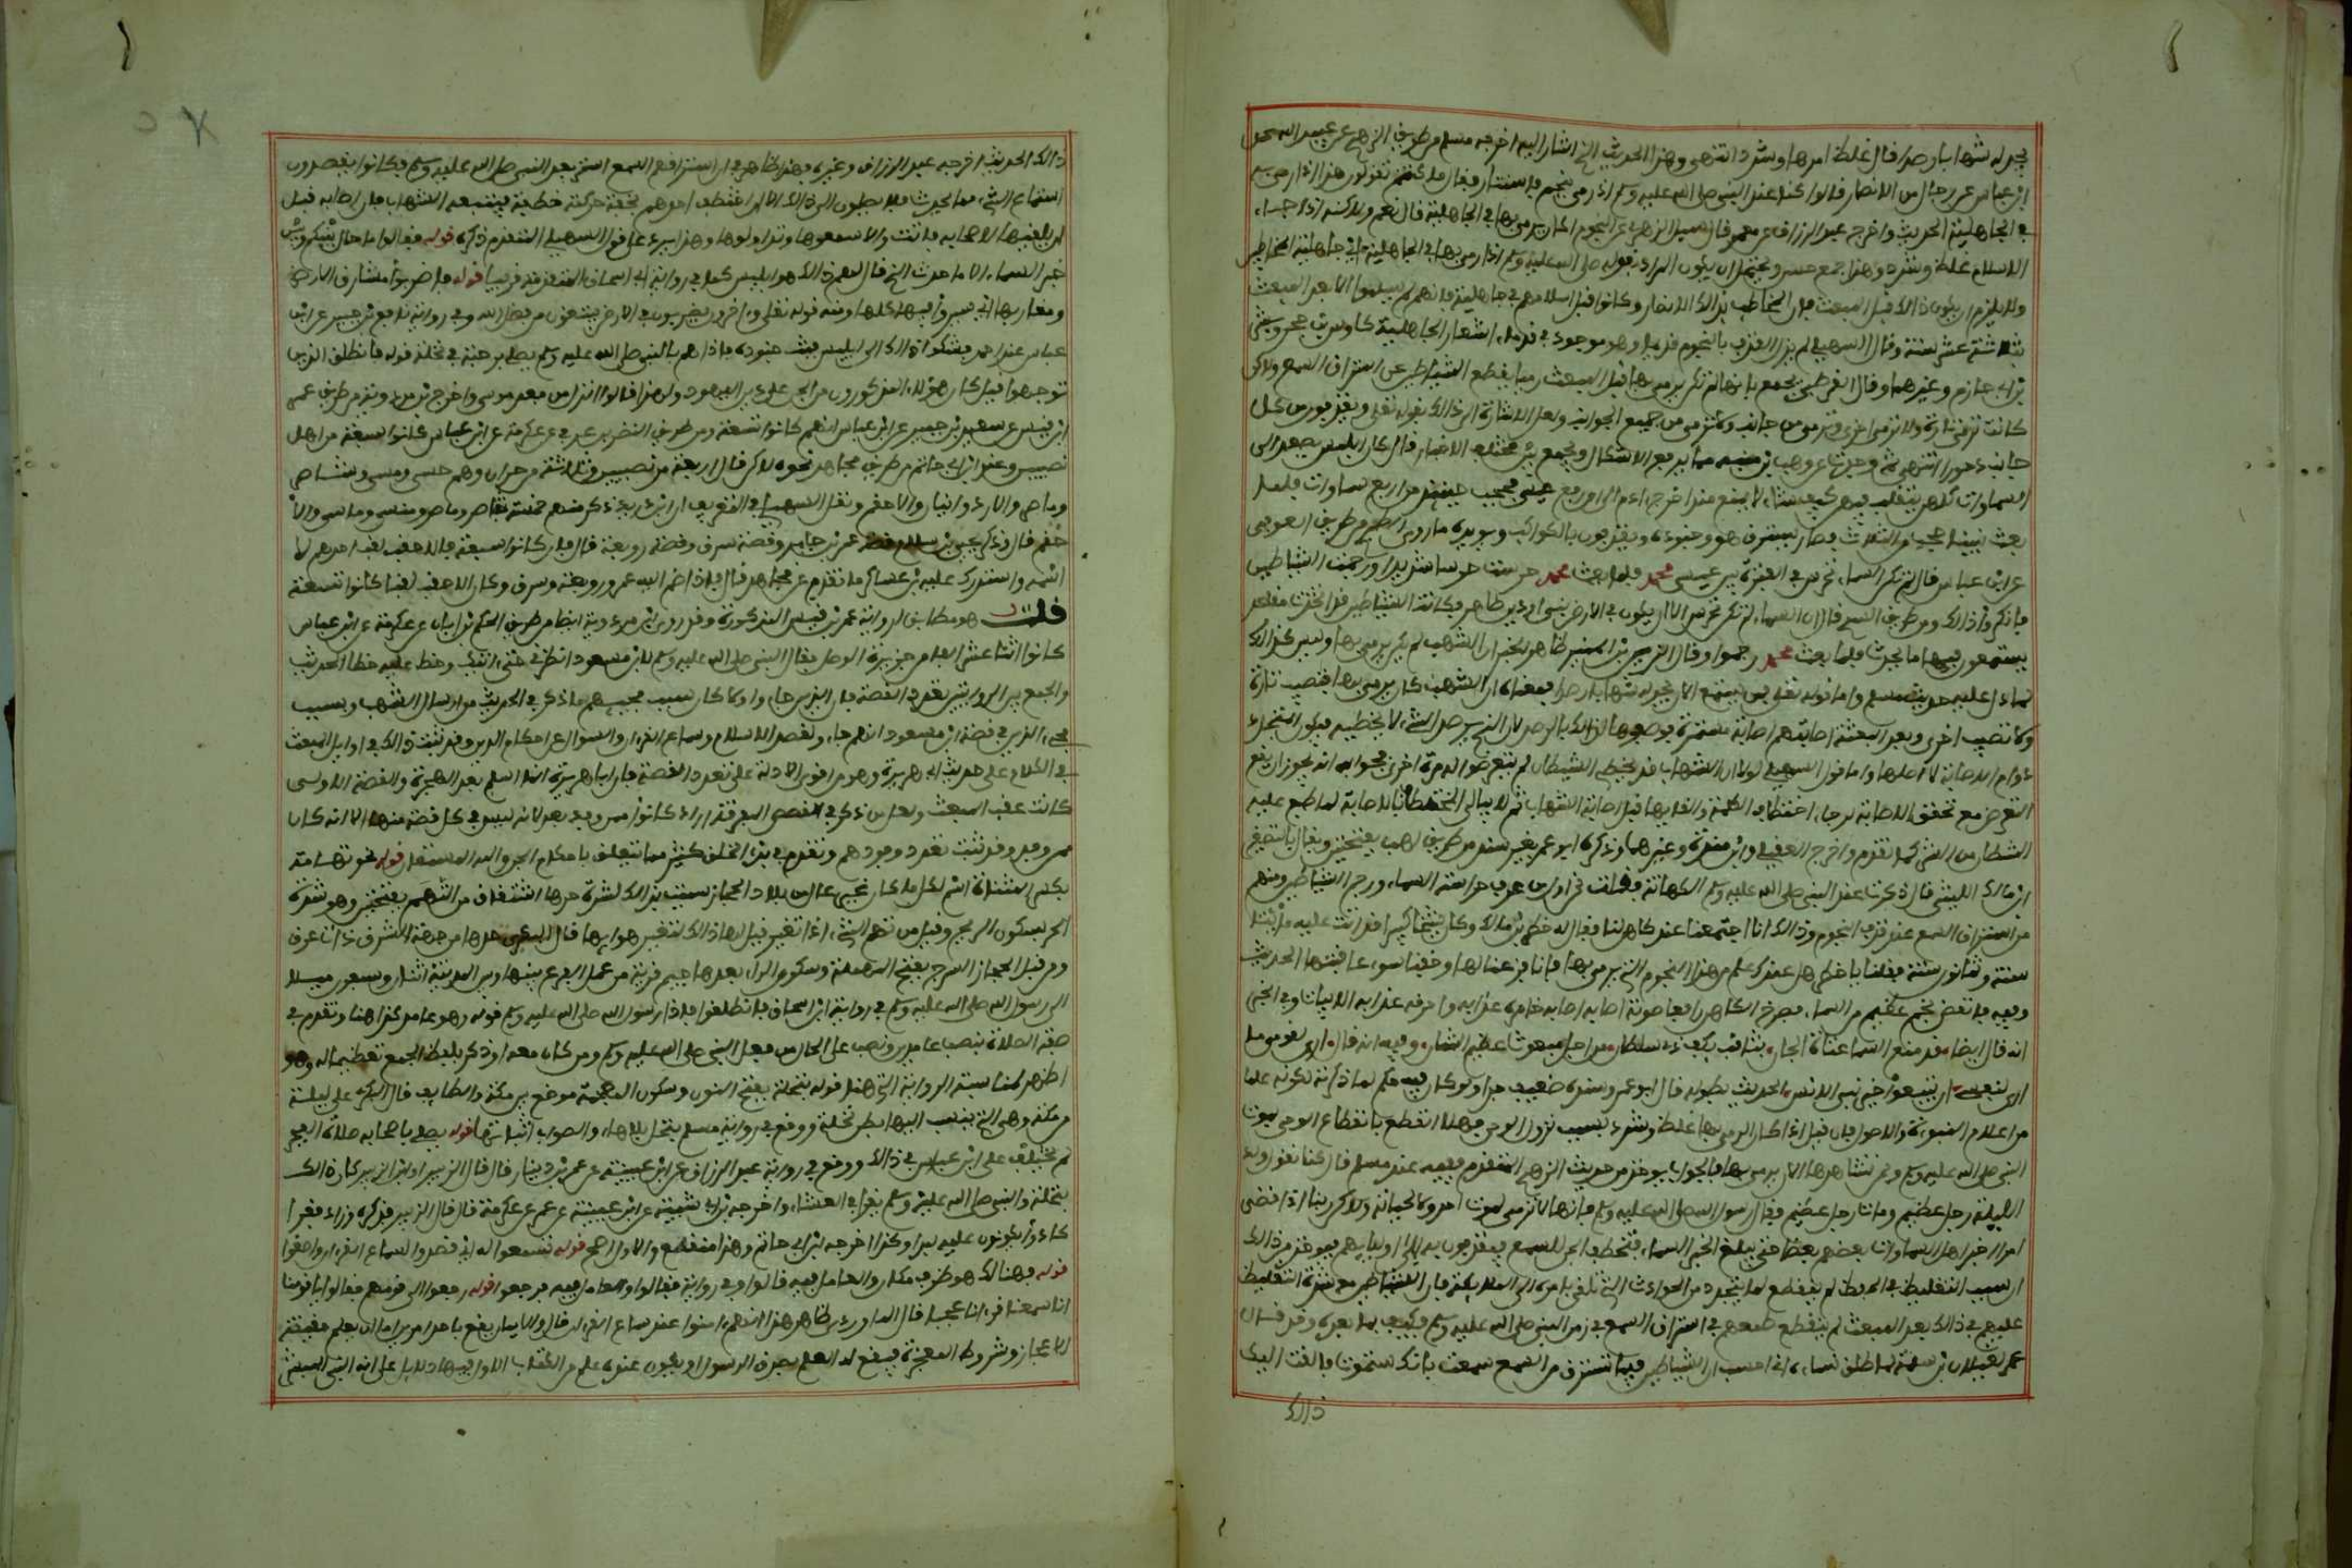 يجد له شهابا رصدا قال غلظ امرها وشدد انتهى وهذا الحديث الذي اشار اليه اخرجه مسلم من طريق الزهري عن عبيد الله عن
ابن عباس عن رجال من الانصار قالوا كنا عند النبي صلى الله عليه وسلم اذ رمي بنجم فاستنار فقال ما كنتم تقولون لهذا اذا رمي به
في الجاهلية الحديث واخرج عبد الرزاق عن معمر قال سئل الزهري عن النجوم اكان يرمى بها في الجاهلية قال نعم ولاكنه اذ جاء
الاسلام غلظ وشدد وهذا جمع حسن ويحتمل ان يكون المراد بقوله صلى الله عليه وسلم اذا رمي بها في الجاهلية اي جاهلية المخاطبين
ولا يلزم ان يكون ذالك قبل المبعث فان المخاطب بذالك الانصار وكانوا قبل اسلامهم في جاهلية فانهم لم يسلموا الا بعد المبعث
بثلاثة عشر سنة وقال السهيلي لم يزل القذف بالنجوم قديما وهو موجود في قدماء اشعار الجاهلية كاوس بن حجر وبشر
بن ابي حازم وغيرهما وقال القرطبي يجمع بانها لم تكن يرمى بها قبل المبعث رميا يقطع الشياطين عن استراق السمع ولاكن
كانت ترمى تارة ولا ترمى اخرى وترمى من جانب ولا ترمى من جميع الجوانب ولعل الاشارة الى ذالك بقوله تعلى ويقذفون من كل
جانب دحورا انتهى ثم وجدت عن وهب بن منبه ما يرفع الاشكال ويجمع بين مختلف الاخبار قال كان ابليس يصعد الى
السماوات كلهن يتقلب فيهن كيف شاء لا يمنع منذ اخرج ءادم الى ان رفع عيسى فحجب حينئذ من اربع سماوات فلما
بعث نبينا حجب من الثلاث فصار يسترق هو وجنوده ويقذفون بالكواكب ويويده ما روى الطبري من طريق العوفي
عن ابن عباس قال لم تكن السماء تحرس في الفترة بين عيسى ومحمد فلما بعث محمد حرست حرسا شديدا ورجمت الشياطين
فانكروا ذالك ومن طريق السدي قال ان السماء لم تكن تحرس الا ان يكون في الارض نبي او دين ظاهر وكانت الشياطين قد اتخذت مقاعد
يستمعون فيها ما يحدث فلما بعث محمد رجموا وقال الزين بن المنير ظاهر الخبر ان الشهب لم يكن يرمى بها وليس كذالك
لما دل عليه حديث مسلم واما قوله تعلى فمن يستمع الان يجد له شهابا رصدا فمعناه ان الشهب كان يرمى بها فتصيب تارة
ولا تصيب اخرى وبعد البعثة اصابتهم اصابة مستمرة فوصفوها لذالك بالرصد لان الذي يرصد الشيء لا يخطيه فيكون المتجدد
دوام الاصابة لا اصلها واما قول السهيلي لولا ان الشهاب قد يخطي الشيطان لم يتعرض له مرة اخرى فجوابه انه يجوز ان يقع
التعرض مع تحقق الاصابة لرجاء اختطاف الكلمة والقايها قبل اصابة الشهاب ثم لا يبالي المختطف بالاصابة لما طبع عليه
الشيطان من الشر كما تقدم واخرج العقيلي وابن منده وغيرهما وذكره ابو عمر بغير سند من طريق لهب بفتحتين ويقال بالتصغير
ابن مالك الليثي قال ذكرت عند النبي صلى الله عليه وسلم الكهانة فقلت نحن اول من عرف حراسة السماء ورجم الشياطين ومنعهم
من استراق السمع عند قذف النجوم وذالك انا اجتمعنا عند كاهن لنا يقال له خطر بن مالك وكان شيخا كبيرا قد اتت عليه مائتا
سنة وثمانون سنة فقلنا يا خطر هل عندك علم من هذه النجوم التي يرمى بها فانا فزعنا لها وخفنا سوء عاقبتها الحديث
وفيه فانقض نجم عظيم من السماء فصرخ الكاهن رافعا صوته اصابه اصابه خامره عذابه واحرقه عذابه الابيات وفي الخبر
انه قال ايضا قد منع السمع عتاة الجان بثاقب بكف ذي سلطان من اجل مبعوث عظيم الشان وفيه انه قال ارى لقومي ما
ارى لنفسي ان يتبعوا خير نبي الانس الحديث بطوله قال ابو عمر وسنده ضعيف جدا ولولا كان فيه حكم لما ذكرته لكونه علما
من اعلام النبوءة والاصول فان قيل اذا كان الرمي بها غلظ وشدد بسبب نزول الوحي فهلا انقطع بانقطاع الوحي بموت
النبي صلى الله عليه وسلم ونحن نشاهدها الان يرمى بها فالجواب يوخذ من حديث الزهري المتقدم ففيه عند مسلم قال كنا نقول ولد
الليلة رجل عظيم ومات رجل عظيم فقال رسول الله صلى الله عليه وسلم فانها لا ترمى لموت احد ولا لحياته ولاكن ربنا اذا قضى
امرا اخبر اهل السماوات بعضهم بعضا حتى يبلغ الخبر السماء فتخطف الجن السمع فيقذفون به الى اوليايهم فيوخذ من ذالك
ان سبب التغليظ في الحفظ لم ينقطع لما يتجدد من الحوادث التي تلقى بامره الى الملايكة فان الشياطين مع شدة التغليظ
عليهم في ذالك بعد المبعث لم ينقطع طمعهم في استراق السمع في زمن النبي صلى الله عليه وسلم فكيف بما بعده وقد قال
عمر لغيلان بن سلمة لما طلق نساءه اني احسب ان الشياطين فيما تسترق من السمع سمعت بانك ستموت فالقت اليك
ذالك
ذالك الحديث اخرجه عبد الرزاق وغيره فهذا ظاهر في ان استراقهم السمع استمر بعد النبي صلى الله عليه وسلم فكانوا يقصدون
استماع الشيء مما يحدث فلا يصلون الى ذالك الا ان اختطف احدهم بخفة حركته خطفة فيتبعه الشهاب فان اصابه قبل
ان يلقيها لاصحابه فاتت والا سمعوها وتداولوها وهذا يرد على قول السهيلي المتقدم ذكره قوله فقالوا ما حال بينكم وبين
خبر السماء الا ما حدث الذي قال لهم ذالك هو ابليس كما في رواية ابي اسحاق المتقدمة قريبا قوله فاضربوا مشارق الارض
ومغاربها اي سيروا فيها كلها ومنه قوله تعلى وءاخرون يضربون في الارض يبتغون من فضل الله وفي رواية نافع بن جبير عن ابن
عباس عند احمد فشكوا ذالك الى ابليس فبث جنوده فاذا هم بالنبي صلى الله عليه وسلم يصلي برحبة في نخلة قوله فانطلق الذين
توجهوا قيل كان هؤلاء المذكورون من الجن على دين اليهود ولهذا قالوا انزل من بعد موسى واخرج بن مردويه من طريق عمر
ابن قيس عن سعيد بن جبير عن ابن عباس انهم كانوا تسعة ومن طريق النضر بن عربي عن عكرمة عن ابن عباس كانوا سبعة من اهل
نصيبين وعند ابن ابي حاتم من طريق مجاهد نحوه لاكن قال اربعة من نصيبين وثلاثة من حران وهم حسى ومسى وشاصر
وماصر والارد وانيان والاحقم ونقل السهيلي في التعريف ان ابن دريد ذكر منهم خمسة شاصر وماصر ومنشي وماشي والا
حقم قال وذكر يحيى بن سلام قصة عمر بن جابر وقصة سرق وقصة زوبعة قال فان كانوا سبعة فالاحقب لقب احدهم لا
اسمه واستدرك عليه بن عساكر ما تقدم عن مجاهد قال فاذا ضم اليهم عمر وزوبعة وسرق وكان الاحقب لقبا كانوا تسعة
قلت هو مطابق لرواية عمر بن قيس المذكورة وقد روى ابن مردويه ايضا من طريق الحكم بن ابان عن عكرمة عن ابن عباس
كانوا اثنا عشر الفا من جزيرة الموصل فقال النبي صلى الله عليه وسلم لابن مسعود انظرني حتى ءاتيك وخط عليه خطا الحديث
والجمع بين الروايتين تعدد القصة فان الذين جاءوا اولا كان سبب مجيئهم ما ذكر في الحديث من ارسال الشهب وسبب
مجيء الذين في قصة ابن مسعود انهم جاءوا لقصد الاسلام وسماع القرءان والسؤال عن احكام الدين وقد بينت ذالك في اوايل المبعث
في الكلام على حديث ابي هريرة وهو من اقوى الادلة على تعدد القصة فان ابا هريرة انما اسلم بعد الهجرة والقصة الاولى
كانت عقب المبعث ولعل من ذكر في القصص المفرقة اراد كانوا ممن وفد بعد لانه ليس في كل قصة منها الا انه كان
ممن وفد وقد ثبت تعدد وفودهم وتقدم في بدء الخلق كثير مما يتعلق باحكام الجن والله المستعان قوله نحو تهامة
بكسر المثناة اسم لكل مكان غير عال من بلاد الحجاز سميت بذالك لشدة حرها اشتقاقا من التهم بفتحتين وهو شدة
الحر وسكون الريح وقيل من تهم الشيء اذا تغير قيل لها ذالك لتغير هوايها قال البكري حدها من جهة الشرق ذات عرق
ومن قبل الحجاز السرج بفتح المهملة وسكون الراء بعدها جيم قرية من عمل الفرع بينها وبين المدينة اثنان وسبعون ميلا
الى رسول الله صلى الله عليه وسلم في رواية ابن اسحاق فانطلقوا فاذا رسول الله صلى الله عليه وسلم قوله وهو عامد كذا هنا وتقدم في
صفة الصلاة بنصب عامدين ونصب على الحال من فعل النبي صلى الله عليه وسلم ومن كان معه او ذكر بلفظ الجمع تعظيما له وهو
اظهر لمناسبة الرواية التي هنا قوله بنخلة بفتح النون وسكون المعجمة موضع بين مكة والطايف قال البكري على ليلة
من مكة وهي التي ينسب اليها بطن نخلة ووقع في رواية مسلم بنخل بلا هاء والصواب اثباتها قوله يصلي باصحابه صلاة الفجر
لم يختلف على ابن عباس في ذالك ووقع في رواية عبد الرزاق عن ابن عيينة عن عمر بن دينار قال قال الزبير او ابن الزبير كان ذالك
بنخلة والنبي صلى الله عليه وسلم يقرا في العشاء واخرجه بن ابي شيبة عن ابن عيينة عن عمر عن عكرمة قال قال الزبير فذكره وزاد فقرا
كادوا يكونون عليه لبدا وكذا اخرجه ابن ابي حاتم وهذا منقطع والاول اصح قوله تسمعوا له اي قصدوا السماع القرءان واصغوا
قوله فهنالك هو ظرف مكان والعامل فيه قالوا وفي رواية فقالوا والعامل فيه فرجعوا قوله رجعوا الى قومهم فقالوا يا قومنا
انا سمعنا قرءانا عجبا قال الماوردي ظاهر هذا انهم ءامنوا عند سماع القرءان قال والايمان يقع باحد امرين اما ان يعلم حقيقة
الاعجاز وشروط المعجزة فيقع له العلم بصدق الرسول او يكون عنده علم من الكتاب الاول فيها دلايل على انه النبي المبشر